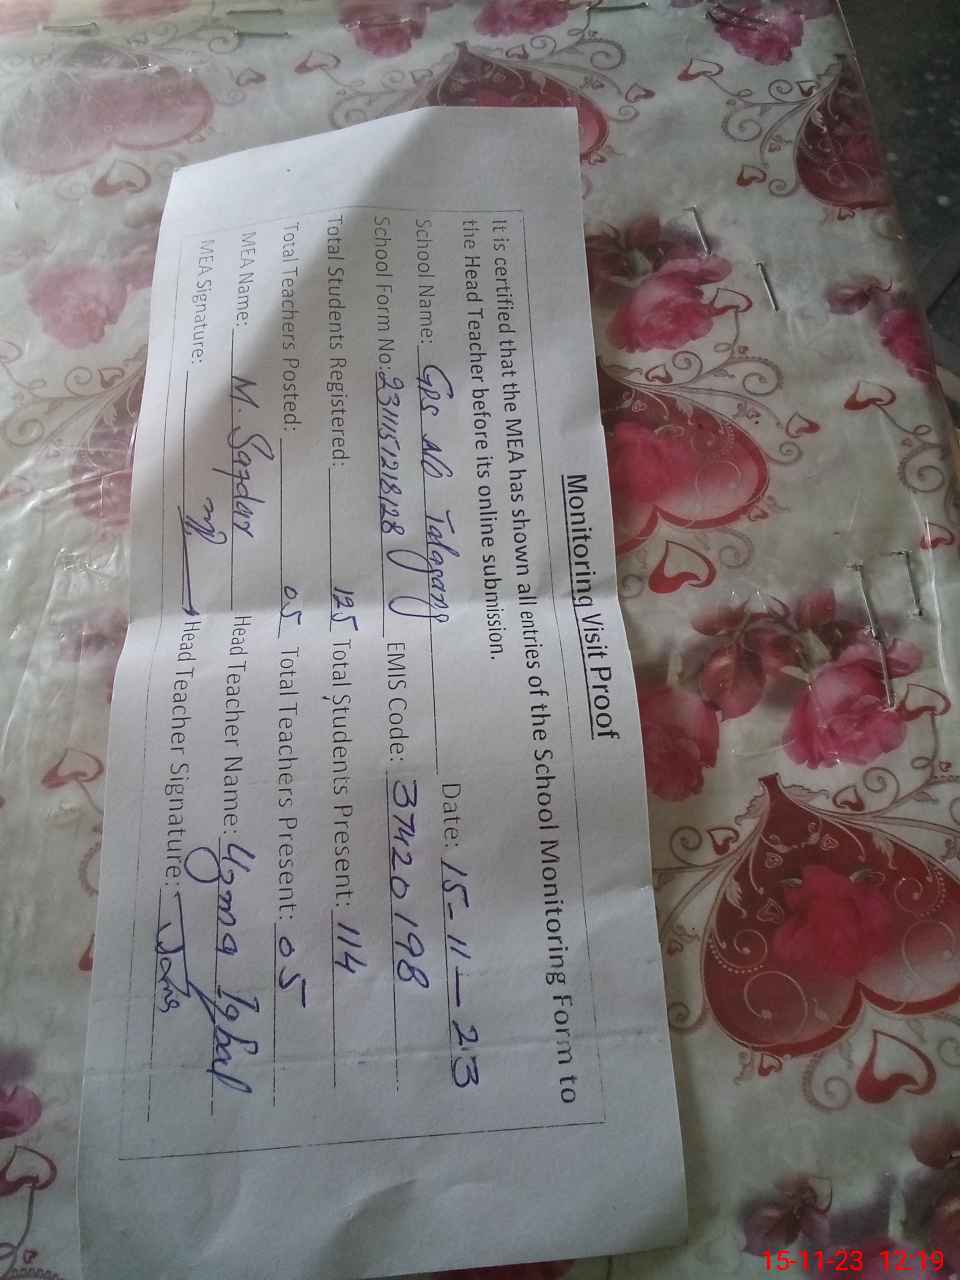 Monitoring Visit Proof
It is certified that the MEA has shown all entries of the School Monitoring Form to
the Head Teacher before its online submission.
School Name: GPS No Talagang Date: 15-11-23
School Form No: 231115121828 EMIS Code: 37420198
Total Students Registered: 125 Total Students Present: 114
Total Teachers Posted: 05 Total Teachers Present: 05
MEA Name: M. Safdar Head Teacher Name: Uzma Iqbal
MEA Signature: Head Teacher Signature:
15-11-23 12:19